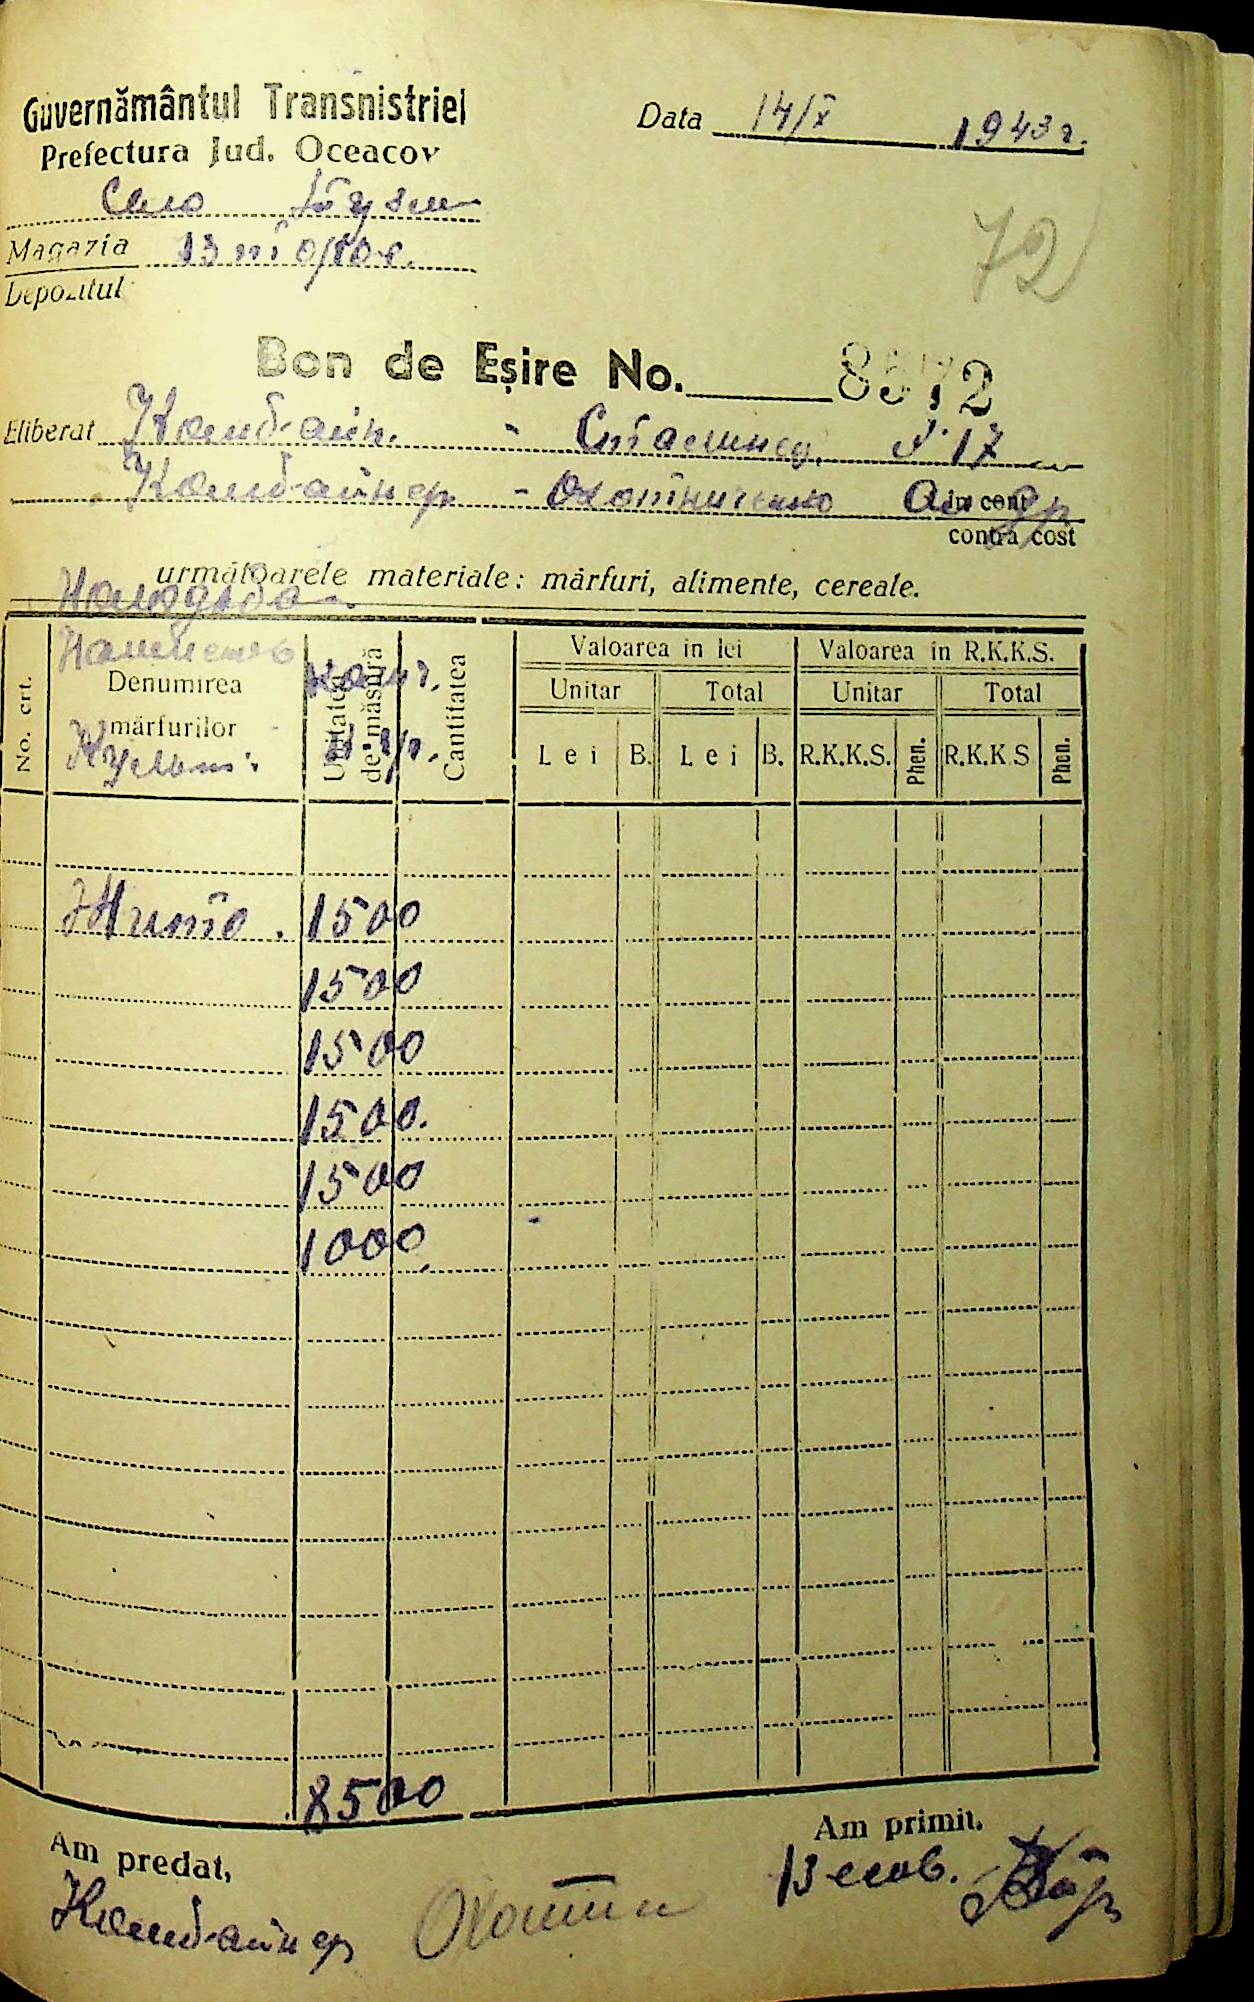 Guvernământul Transnistriei
Prefectura Jud. Oceacov
Data 14/X 1943 г.
Село
Magazia 13
Depozitul
72
Bon de Eșire No. 8572
Eliberat Комбайн. - Сталинец № 17
Комбайнер - Охотниченко
din cont
contra cost
următoarele materiale: mărfuri, alimente, cereale.
No. crt.
Denumirea mărfurilor
Unitatea de măsură
Cantitatea
Valoarea in lei
Valoarea in R.K.K.S.
Unitar
Total
Unitar
Total
Lei
B.
Lei
B.
R.K.K.S.
Phen.
R.K.K.S
Phen.
Культ.
Жито. 1500
1500
1500
1500.
1500
1000
8500
Am predat,
Am primit.
Комбайнер
Весов.